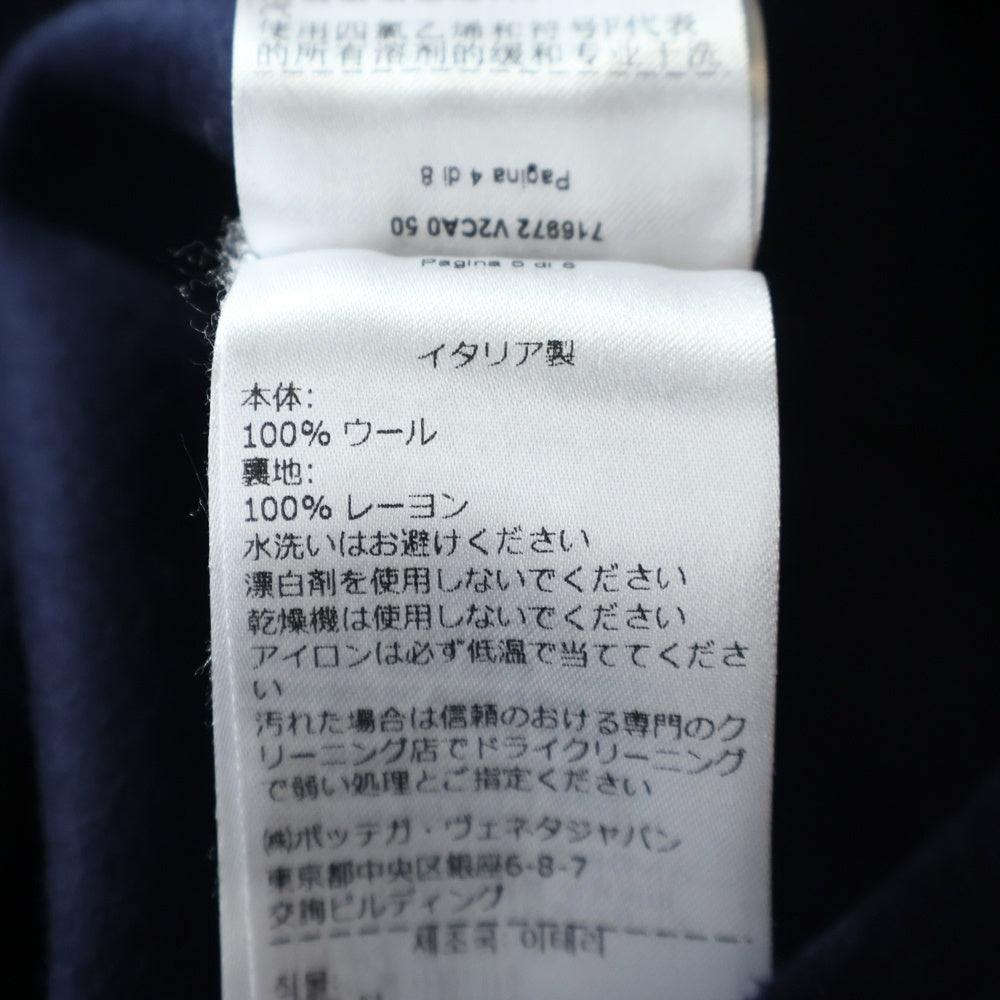 使用四氯乙烯和符号P代表
的所有溶剂的缓和专业干洗
Pagina 4 di 8
716972 V2CA0 50
イタリア製
本体:
100% ウール
裏地:
100% レーヨン
水洗いはお避けください
漂白剤を使用しないでください
乾燥機は使用しないでください
アイロンは必ず低温で当ててくださ
い
汚れた場合は信頼のおける専門のク
リーニング店でドライクリーニング
で弱い処理とご指定ください
㈱ボッテガ・ヴェネタジャパン
東京都中央区銀座6-8-7
交詢ビルディング
제조국: 이태리
직물: